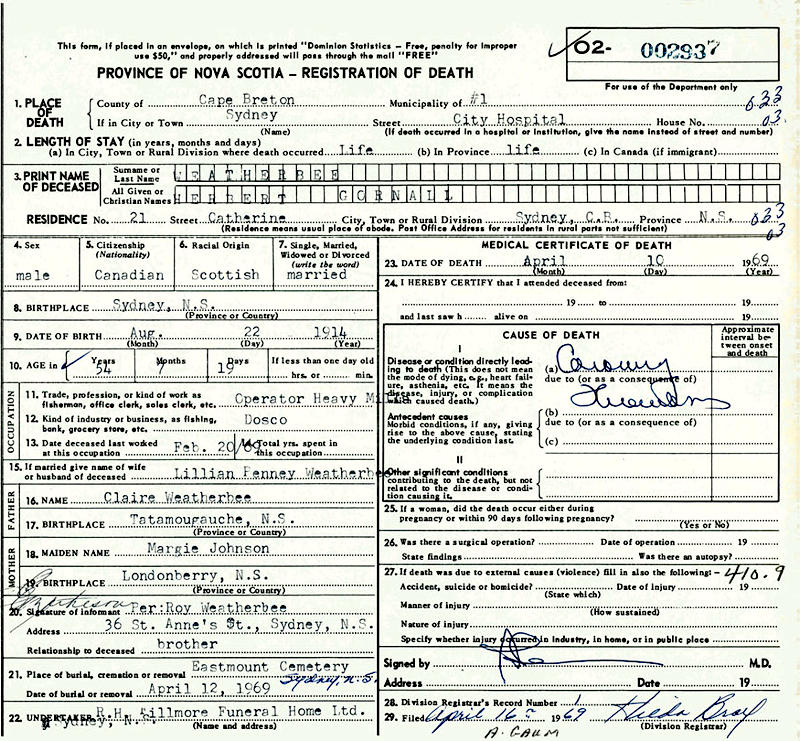 This form, if placed in an envelope, on which is printed "Dominion Statistics - Free, penalty for improper
use $50," and properly addressed will pass through the mail "FREE"
O2- 002937
PROVINCE OF NOVA SCOTIA - REGISTRATION OF DEATH
For use of the Department only
1. PLACE OF DEATH County of Cape Breton Municipality of #1 033
If in City or Town Sydney Street City Hospital House No. 03
(Name) (If death occurred in a hospital or institution, give the name instead of street and number)
2. LENGTH OF STAY (in years, months and days)
(a) In City, Town or Rural Division where death occurred Life (b) In Province life (c) In Canada (if immigrant)
3. PRINT NAME OF DECEASED Surname or Last Name WEATHERBEE
All Given or Christian Names HERBERT GORNALL
RESIDENCE No. 21 Street Catherine City, Town or Rural Division Sydney, C.B. Province N.S. 033
(Residence means usual place of abode. Post Office Address for residents in rural parts not sufficient) 03
4. Sex male
5. Citizenship (Nationality) Canadian
6. Racial Origin Scottish
7. Single, Married, Widowed or Divorced (write the word) married
8. BIRTHPLACE Sydney, N.S.
(Province or Country)
9. DATE OF BIRTH Aug. 22 1914
(Month) (Day) (Year)
10. AGE in Years 54 Months 7 Days 19 If less than one day old
hrs. or min.
OCCUPATION
11. Trade, profession, or kind of work as fisherman, office clerk, sales clerk, etc. Operator Heavy
12. Kind of industry or business, as fishing, bank, grocery store, etc. Dosco
13. Date deceased last worked at this occupation Feb. 20/69 14. Total yrs. spent in this occupation
15. If married give name of wife or husband of deceased Lillian Penney Weatherbee
FATHER
16. NAME Claire Weatherbee
17. BIRTHPLACE Tatamougauche, N.S.
(Province or Country)
MOTHER
18. MAIDEN NAME Margie Johnson
19. BIRTHPLACE Londonberry, N.S.
(Province or Country)
20. Signature of informant Per:Roy Weatherbee
Address 36 St. Anne's St., Sydney, N.S.
Relationship to deceased brother
21. Place of burial, cremation or removal Eastmount Cemetery
Sydney, N.S.
Date of burial or removal April 12, 1969
22. UNDERTAKER R.H. Fillmore Funeral Home Ltd.
Sydney, N.S. (Name and address)
MEDICAL CERTIFICATE OF DEATH
23. DATE OF DEATH April 10 1969
(Month) (Day) (Year)
24. I HEREBY CERTIFY that I attended deceased from:
19 to 19
and last saw h alive on 19
CAUSE OF DEATH
Approximate interval between onset and death
I
24. Disease or condition directly leading to death (This does not mean the mode of dying, e.g., heart failure, asthenia, etc. It means the disease, injury, or complication which caused death.)
(a) Coronary
due to (or as a consequence of)
Thrombosis
Antecedent causes
Morbid conditions, if any, giving rise to the above cause, stating the underlying condition last.
(b)
due to (or as a consequence of)
(c)
II
Other significant conditions
contributing to the death, but not related to the disease or condition causing it.
25. If a woman, did the death occur either during
pregnancy or within 90 days following pregnancy?
(Yes or No)
26. Was there a surgical operation? Date of operation 19
State findings Was there an autopsy?
27. If death was due to external causes (violence) fill in also the following:- 410.9
Accident, suicide or homicide? Date of injury 19
(State which)
Manner of injury
(How sustained)
Nature of injury
Specify whether injury occurred in industry, in home, or in public place
Signed by M.D.
Address Date 19
28. Division Registrar's Record Number 1
29. Filed April 16 1969 Hilda Bray
(Division Registrar)